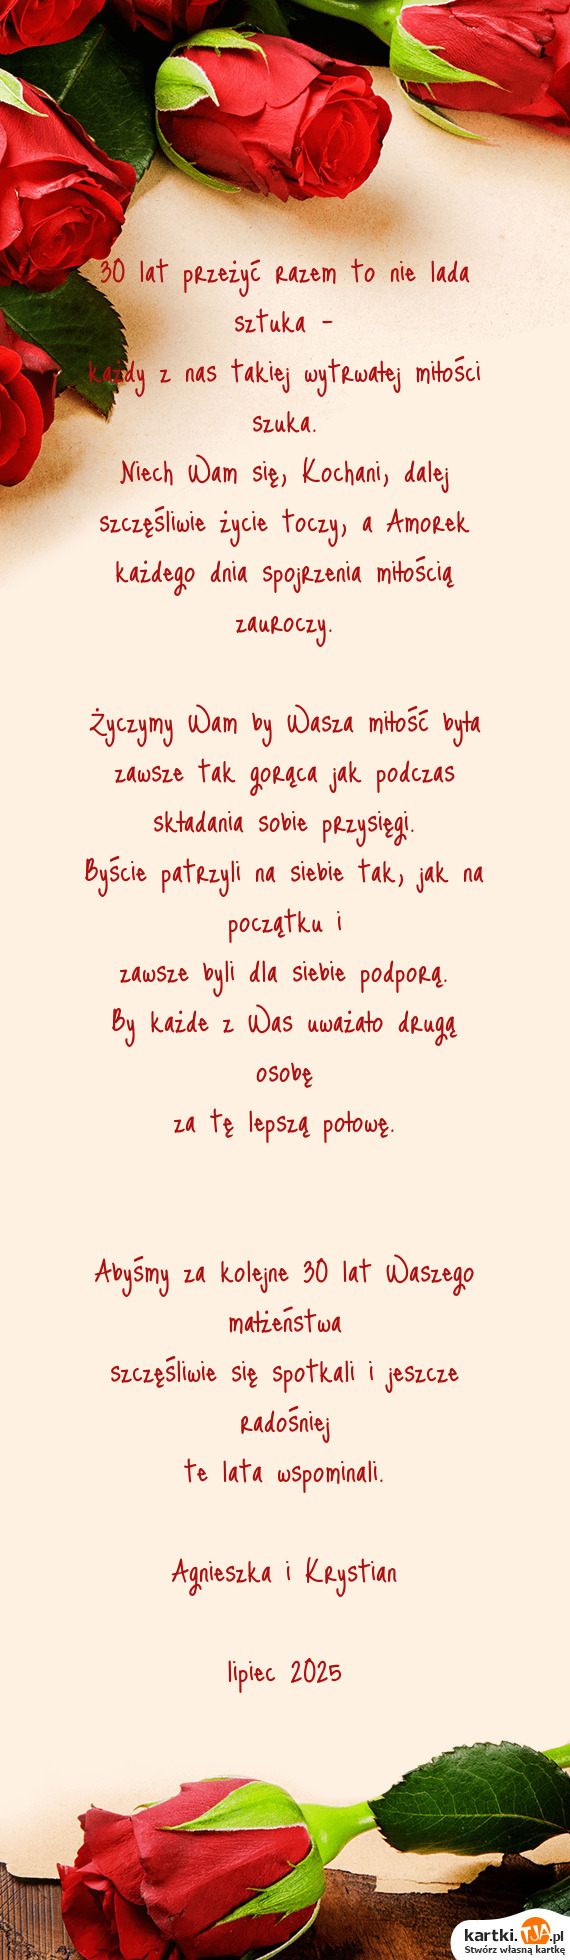 30 lat przeżyć razem to nie lada
sztuka -
każdy z nas takiej wytrwałej miłości
szuka.
Niech Wam się, Kochani, dalej
szczęśliwie życie toczy, a Amorek
każdego dnia spojrzenia miłością
zauroczy.
Życzymy Wam by Wasza miłość była
zawsze tak gorąca jak podczas
składania sobie przysięgi.
Byście patrzyli na siebie tak, jak na
początku i
zawsze byli dla siebie podporą.
By każde z Was uważało drugą
osobę
za tę lepszą połowę.
Abyśmy za kolejne 30 lat Waszego
małżeństwa
szczęśliwie się spotkali i jeszcze
radośniej
te lata wspominali.
Agnieszka i Krystian
lipiec 2025
kartki.TJA.pl
Stwórz własną kartkę